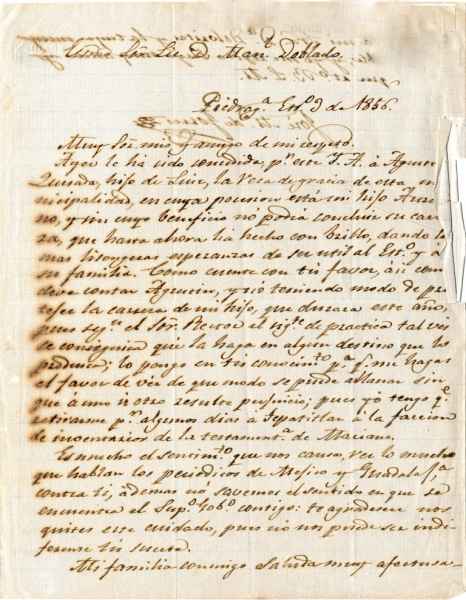 Exmo Sõr Lic. D. Man.l Doblado.
Piedrag.a En.o 9 de 1856.
Muy Sõr mio y amigo de mi respeto.
Ayer le ha sido concedida, p.r ese S. A. á Agustin
Quirada, hijo de Line, la Veca de gracia de esta mu-
nicipalidad, en cuya posecion está mi hijo
no, y sin cuyo beneficio no podra concluir su car-
rera, que hasta ahora há hecho con brillo, dando las
mas lisongeras esperanzas de ser util al Est.o y á
su familia. Como cuento con tu favor, asi como
debe contar Agustin, y nó teniendo modo de pro-
teger la carrera de mi hijo, que durara este año,
pues segun el Sõr. Rector el de practica tal vés
se conseguira que la haga en algun destino que les
produsca; lo pongo en tu conocim.to p.a q. me hagas
el favor de ver de que modo se puede allanar sin
que á uno ú otro resulte perjuicio; pues yó tengo q.e
retirarme p.r algunos dias á Jepatitlan á la faccion
de inventarios de la testament.a de Mariano.
Es mucho el sentim.to que nos causa, ver lo mucho
que hablan los periodicos de Mejico y Guadalaj.a
contra ti, ademas nó savemos el sentido en que se
encuentra el Sup.o Gob.o contigo: te agradecere nos
quites este cuidado, pues nó nos puede ser indi-
ferente tu suerte.
Mi familia conmigo saluda muy afectuosa-